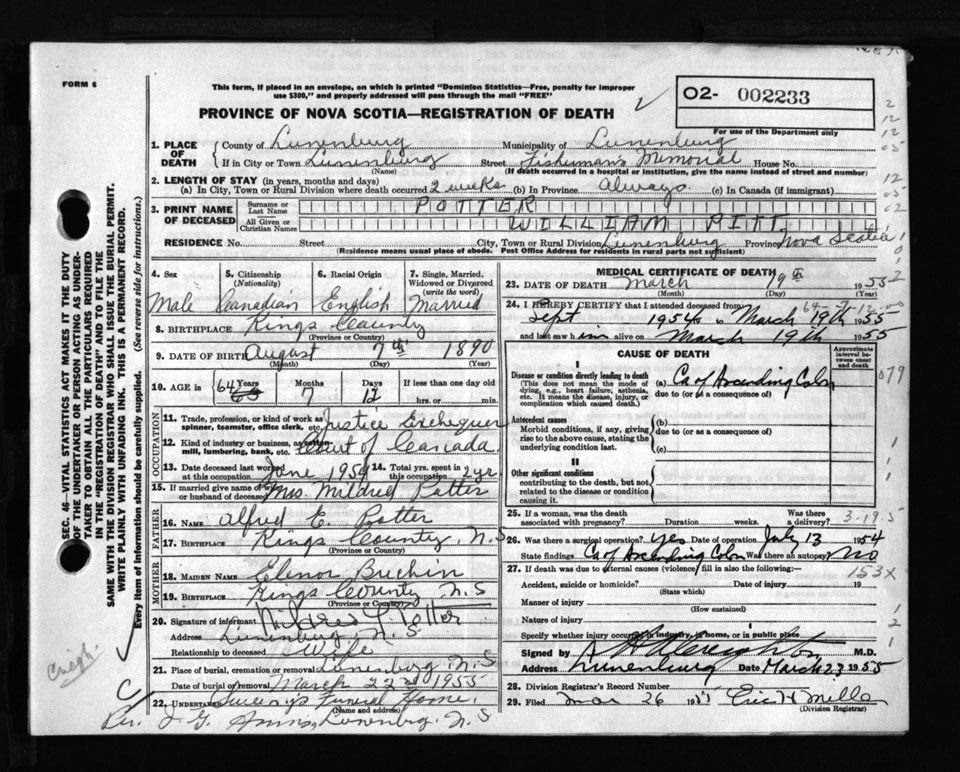 FORM 6
This form, if placed in an envelope, on which is printed "Dominion Statistics—Free, penalty for improper
use $300," and properly addressed will pass through the mail "FREE"
O2- 002233
PROVINCE OF NOVA SCOTIA—REGISTRATION OF DEATH
For use of the Department only
1. PLACE OF DEATH
County of Lunenburg Municipality of Lunenburg
If in City or Town Lunenburg Street Fisherman's Memorial House No.
(Name) (If death occurred in a hospital or institution, give the name instead of street and number)
2. LENGTH OF STAY (in years, months and days)
(a) In City, Town or Rural Division where death occurred 2 weeks (b) In Province Always (c) In Canada (if immigrant)
3. PRINT NAME OF DECEASED
Surname or Last Name POTTER
All Given or Christian Names WILLIAM PITT
RESIDENCE No. Street City, Town or Rural Division Lunenburg Province Nova Scotia
(Residence means usual place of abode. Post Office Address for residents in rural parts not sufficient)
4. Sex Male
5. Citizenship (Nationality) Canadian
6. Racial Origin English
7. Single, Married, Widowed or Divorced (write the word) Married
8. BIRTHPLACE Kings County
(Province or Country)
9. DATE OF BIRTH August 7th 1890
(Month) (Day) (Year)
10. AGE in 64 Years 7 Months 12 Days If less than one day old
hrs. or min.
OCCUPATION
11. Trade, profession, or kind of work as spinner, teamster, office clerk, etc. Justice Exchequer
12. Kind of industry or business, as cotton-mill, lumbering, bank, etc. Court of Canada
13. Date deceased last worked at this occupation June 1954 14. Total yrs. spent in this occupation 2 yr.
15. If married give name of wife or husband of deceased Mrs. Mildred Potter
FATHER
16. NAME Alfred E. Potter
17. BIRTHPLACE Kings County, N.S
(Province or Country)
MOTHER
18. MAIDEN NAME Elenor
19. BIRTHPLACE Kings County N S
(Province or Country)
20. Signature of informant Mildred Potter
Address Lunenburg, N. S
Relationship to deceased Wife
21. Place of burial, cremation or removal Lunenburg N. S
Date of burial or removal March 22nd 1955
22. UNDERTAKER Funeral Home,
(NAME AND ADDRESS)
Rev. Lunenburg. N. S
MEDICAL CERTIFICATE OF DEATH
23. DATE OF DEATH March 19th 1955
(Month) (Day) (Year)
24. I HEREBY CERTIFY that I attended deceased from
Sept 1954 to March 19th 1955
and last saw him alive on March 19th 1955
CAUSE OF DEATH
Approximate interval between onset and death
I
Disease or condition directly leading to death
(This does not mean the mode of dying, e.g., heart failure, asthenia, etc. It means the disease, injury, or complication which caused death.)
(a) Ca of Ascending Colon
due to (or as a consequence of)
Antecedent causes
Morbid conditions, if any, giving rise to the above cause, stating the underlying condition last.
(b)
due to (or as a consequence of)
(c)
II
Other significant conditions
contributing to the death, but not related to the disease or condition causing it.
25. If a woman, was the death associated with pregnancy? Duration weeks. Was there a delivery?
26. Was there surgical operation? yes Date of operation July 13 1954
State findings Ca of Ascending Colon Was there an autopsy? No
27. If death was due to external causes (violence) fill in also the following:
153X
Accident, suicide or homicide? Date of injury 19
(State which)
Manner of injury
(How sustained)
Nature of injury
Specify whether injury occurred in industry, in home, or in public place
Signed by M.D.
Address Lunenburg Date March 23 1955
28. Division Registrar's Record Number
29. Filed Mar 26 1955
(Division Registrar)
SEC. 46—VITAL STATISTICS ACT MAKES IT THE DUTY
OF THE UNDERTAKER OR PERSON ACTING AS UNDER-
TAKER TO OBTAIN ALL THE PARTICULARS REQUIRED
IN THE "REGISTRATION OF DEATH" AND TO FILE THE
SAME WITH THE DIVISION REGISTRAR WHO SHALL ISSUE THE BURIAL PERMIT.
WRITE PLAINLY WITH UNFADING INK. THIS IS A PERMANENT RECORD.
Every item of information should be carefully supplied. (See reverse side for instructions.)